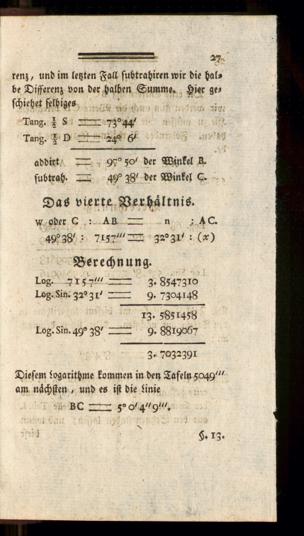 27
renz, und im letzten Fall subtrahiren wir die hal=
be Differenz von der halben Summe. Hier ge=
schiehet selbiges
Tang. ½ S = 73° 44′
Tang. ½ D = 24° 6′
addirt = 97° 50′ der Winkel B.
subtrah. = 49° 38′ der Winkel C.
Das vierte Verhältnis.
w oder C : AB = n : AC.
49° 38′ : 7157‴ = 32° 31′ : (x)
Berechnung.
Log. 7157‴ = 3. 8547310
Log. Sin. 32° 31′ = 9. 7304148
13. 5851458
Log. Sin. 49° 38′ = 9. 8819067
3. 7032391
Diesem Logarithme kommen in den Tafeln 5049‴
am nächsten, und es ist die Linie
BC = 5° 0′ 4″ 9‴.
§. 13.